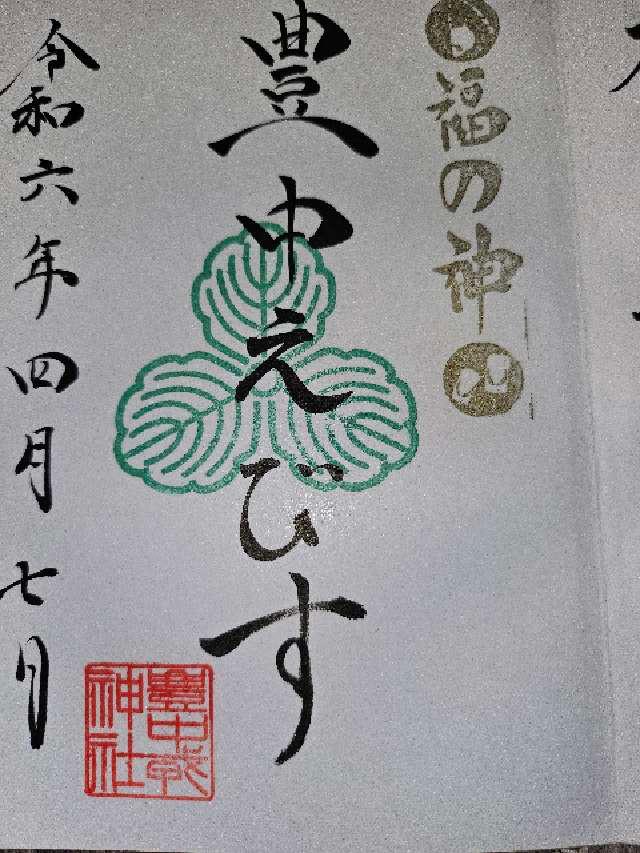 福の神
豊中えびす
令和六年四月七日
豐中戎
神社